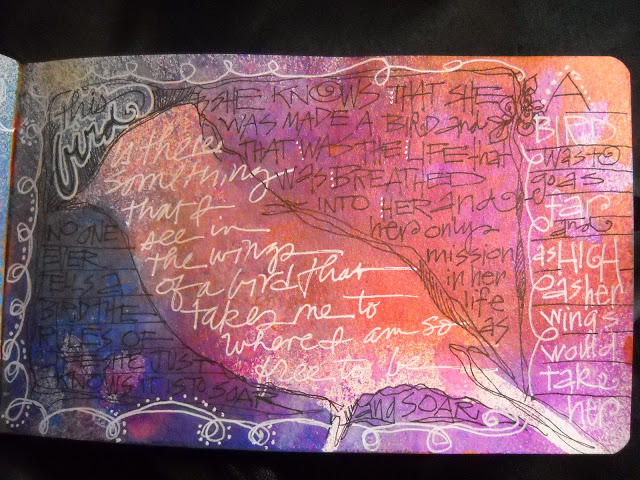 This
bird
is there
something
that I
see in
the wings
of a bird that
takes me to
where I am so
free to be
NO ONE
EVER
TELLS A
BIRD THE
RULES OF
SHE JUST
KNOWS IT IS TO SOAR
and SOAR
SHE KNOWS THAT SHE
WAS MADE A BIRD and
THAT WAS THE LIFE that
WAS BREATHED
INTO HER and
her only
mission
in her
life
as
A
BIRD
was to
go as
far
and
as HIGH
as her
wings
would
take
her